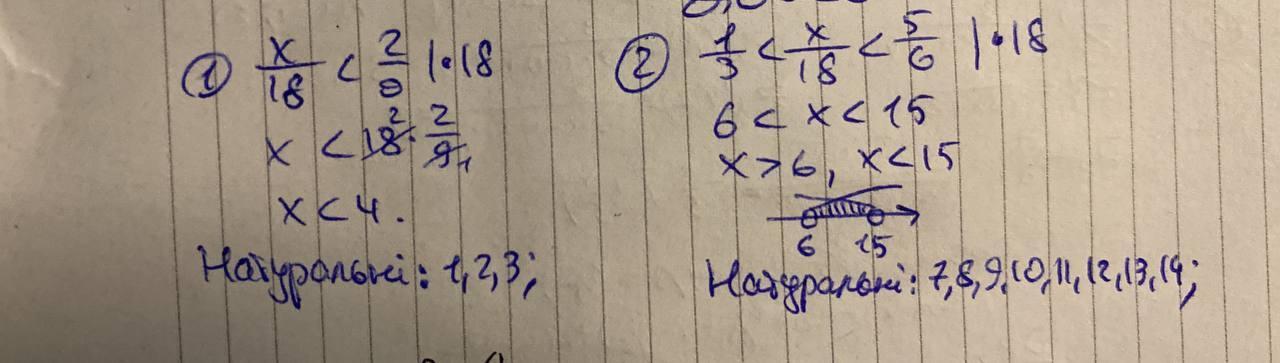 ① x/18 < 2/9 | • 18
x < 18² · 2/9₁
x < 4.
Натуральні: 1, 2, 3;
② 1/3 < x/18 < 5/6 | • 18
6 < x < 15
x > 6, x < 15
6 15
Натуральні: 7, 8, 9, 10, 11, 12, 13, 14;